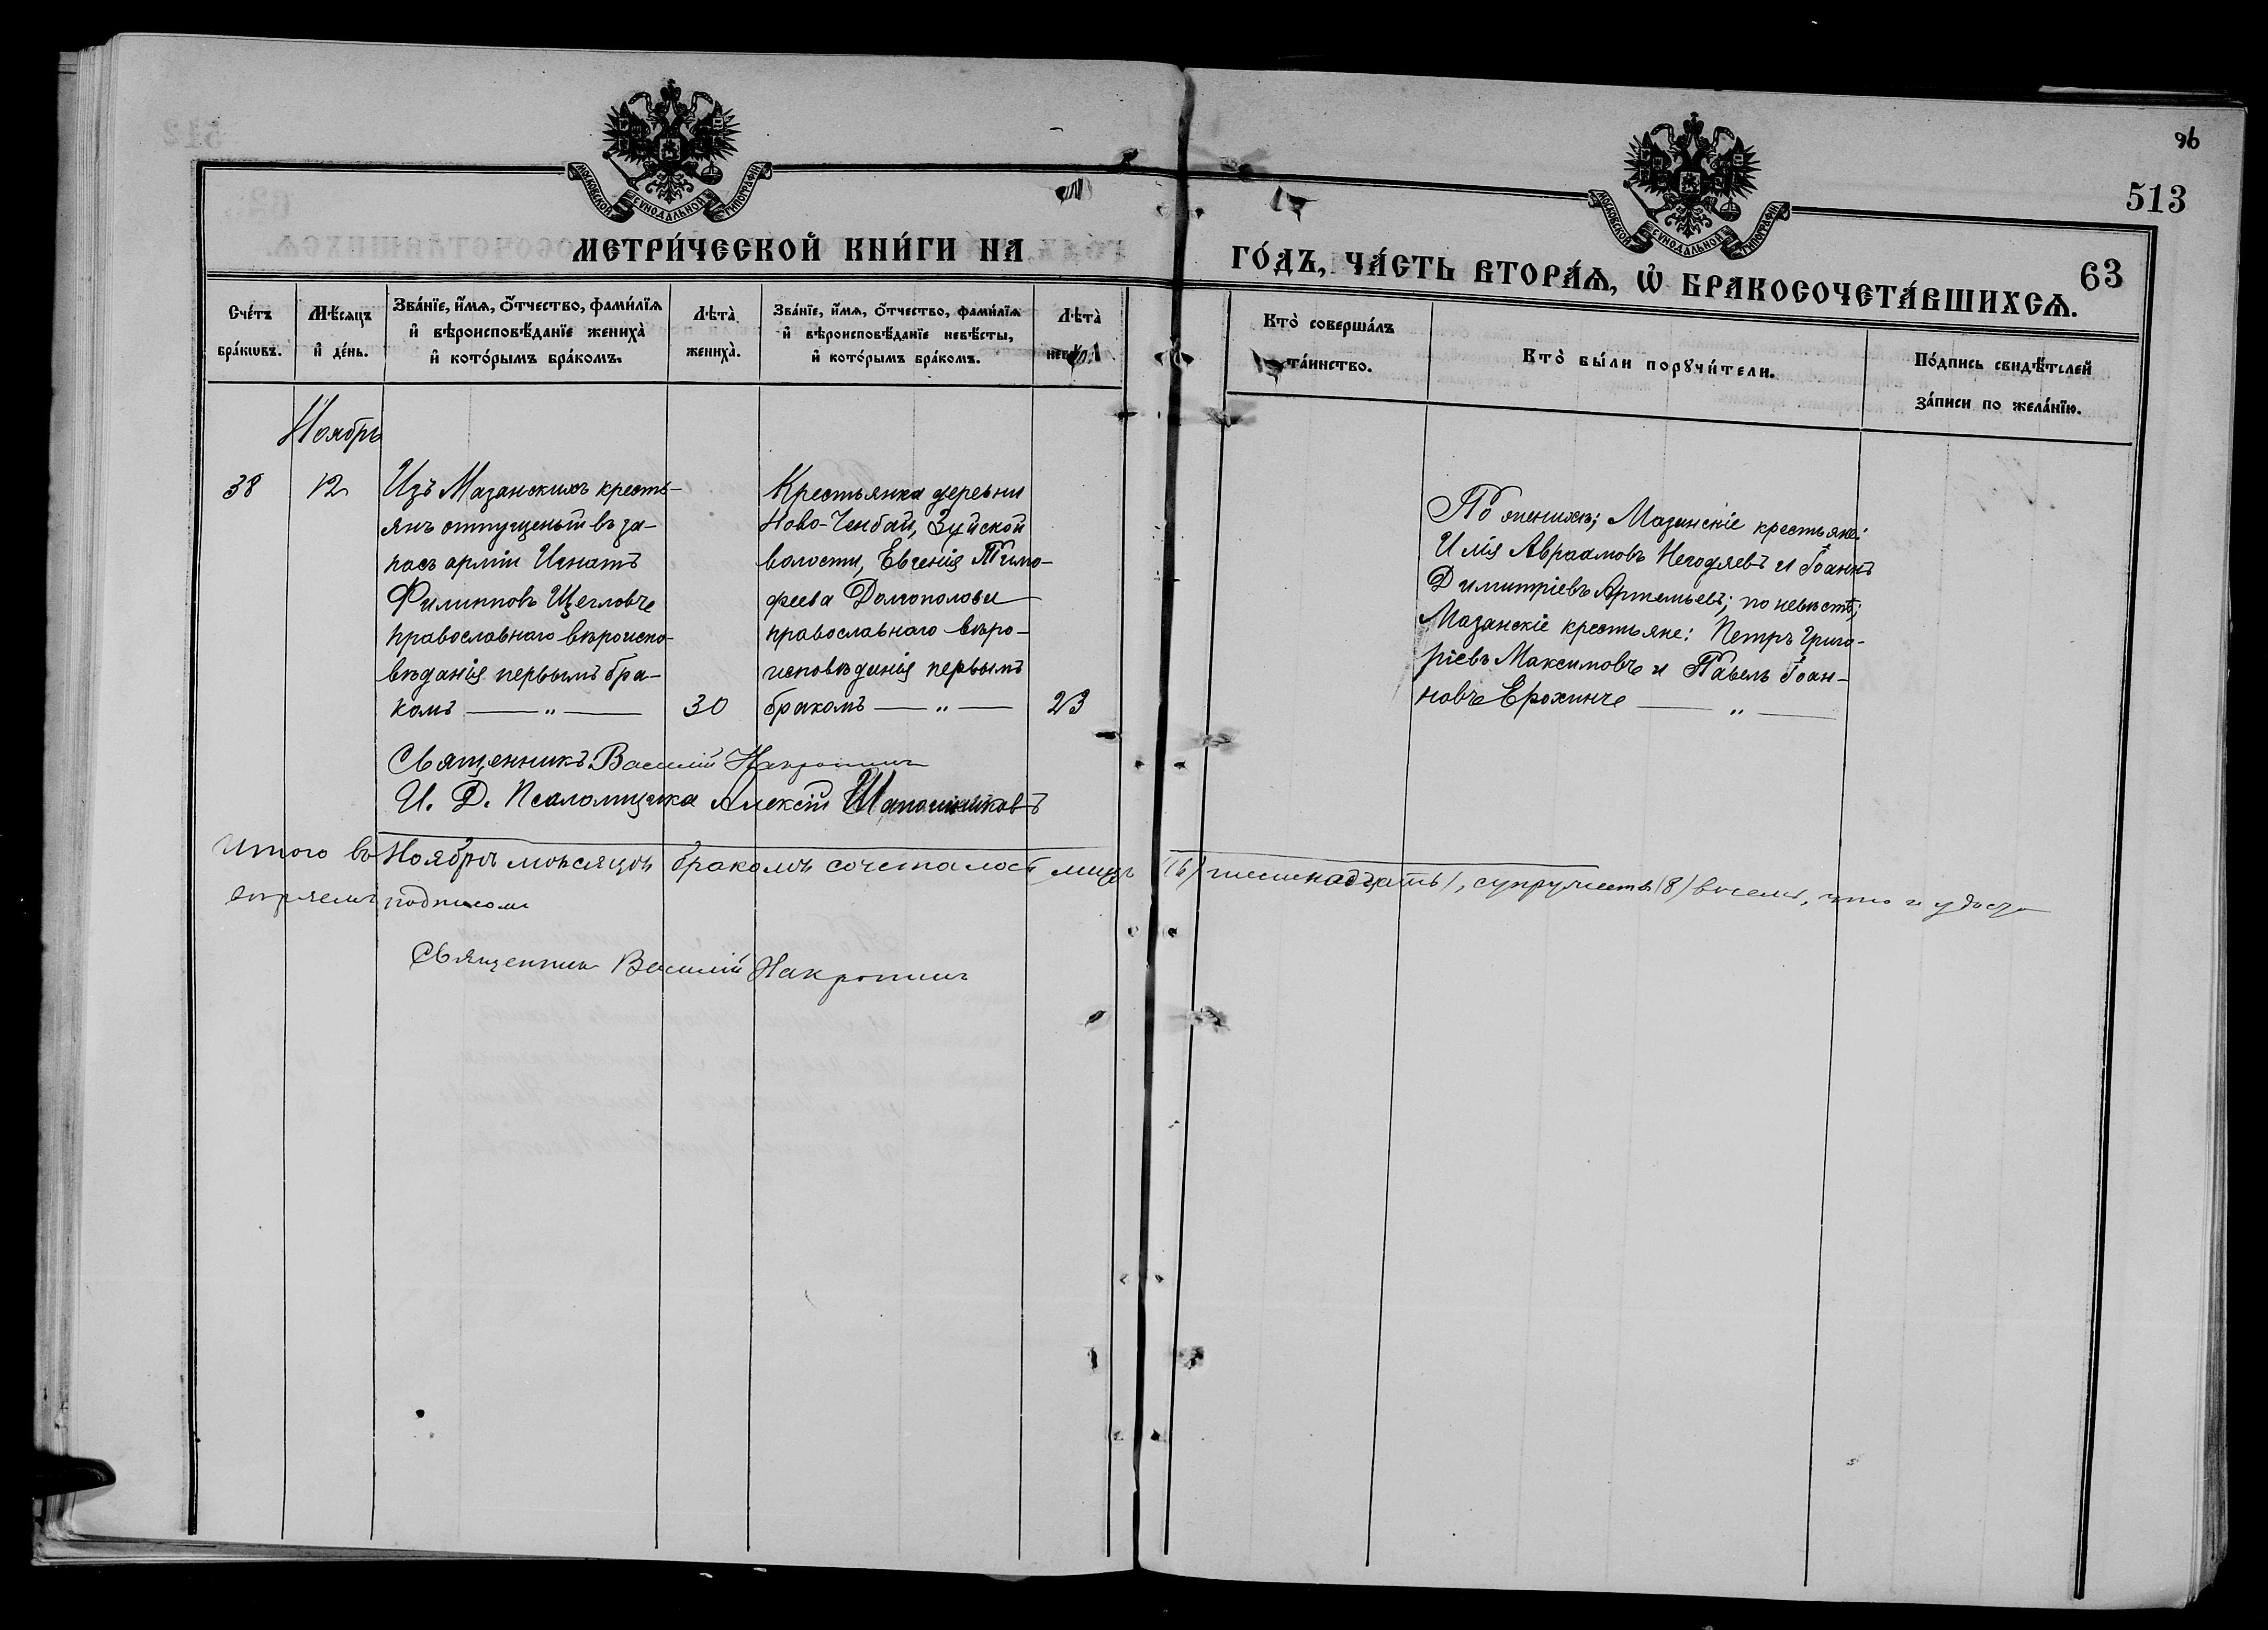 96
513
63
МОСКОВСКОЙ СѴНОДАЛЬНОЙ ТИПОГРАФІИ
МОСКОВСКОЙ СѴНОДАЛЬНОЙ ТИПОГРАФІИ
МЕТРИ́ЧЕСКОЙ КНИ́ГИ НА ГО́ДЪ, ЧА́СТЬ ВТОРА́Ѧ, Ѡ҆ БРАКОСОЧЕТА́ВШИХСѦ.
Сче́тъ
бра́кѡвъ.
Мѣ́сяцъ
и҆ де́нь.
Зва́нїе, и҆́мѧ, ѻ҆́тчество, фами́лїѧ
и҆ вѣроисповѣ́данїе жениха̀
и҆ кото́рымъ бра́комъ.
Лѣта̀
жениха̀.
Зва́нїе, и҆́мѧ, ѻ҆́тчество, фами́лїѧ
и҆ вѣроисповѣ́данїе невѣ́сты,
и҆ кото́рымъ бра́комъ.
Лѣта̀
Кто̀ соверша́лъ
та́инство.
Кто̀ бы́ли порꙋчи́тели.
По́дпись свидѣ́телей
за́писи по жела́нїю.
Ноябрь
38
12
Изъ Мазанскихъ кресть-
янъ отпущеный въ за-
пасъ арміи Игнатъ
Филипповъ Щегловъ
православнаго вѣроиспо-
вѣданія первымъ бра-
комъ — „ —
30
Крестьянка деревни
Ново-Ченбай, Зуйской
волости, Евгенія Тимо-
феева Долгополова
православнаго вѣро-
исповѣданія первымъ
бракомъ — „ —
23
По женихѣ; Мазанскіе крестьяне:
Илія Авраамовъ Негодяевъ и Іоаннъ
Димитріевъ Артемьевъ; по невѣстѣ;
Мазанскіе крестьяне: Петръ Григо-
ріевъ Максимовъ и Павелъ Іоан-
новъ Ерохинъ — „ —
Священникъ Василій Накропинъ
И. Д. Псаломщика Алексій Шапошниковъ
Итого въ Ноябрѣ мѣсяцѣ бракомъ сочеталось лицъ (16) шестнадцать, супружествъ (8) восемь, что и удосто
вѣряемъ подписом
Священникъ Василій Накропинъ